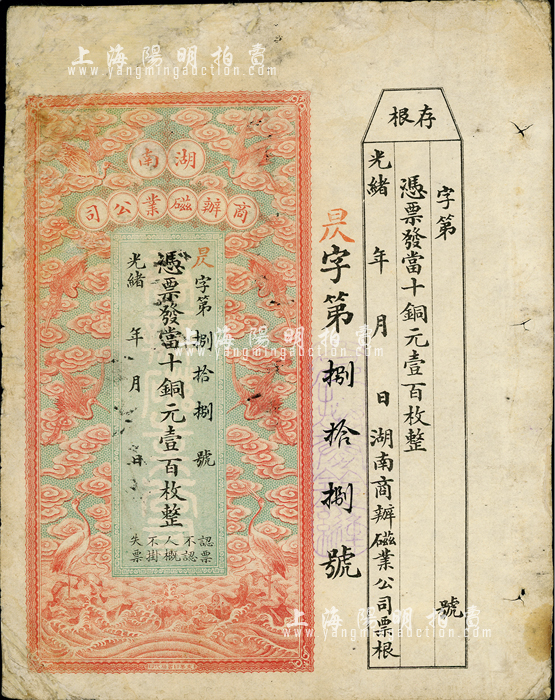 上海陽明拍賣
www.yangmingauction.com
存根
字第 號
憑票發當十銅元壹百枚整
光緒 年 月 日湖南商辦磁業公司票根
昃字第捌拾捌號
湖南
商辦磁業公司
昃字第捌拾捌號
憑票發當十銅元壹百枚整
光緒 年 月 日
認票不認人概不掛失票
上海陽明拍賣
www.yangmingauction.com
上海陽明拍賣
www.yangmingauction.com